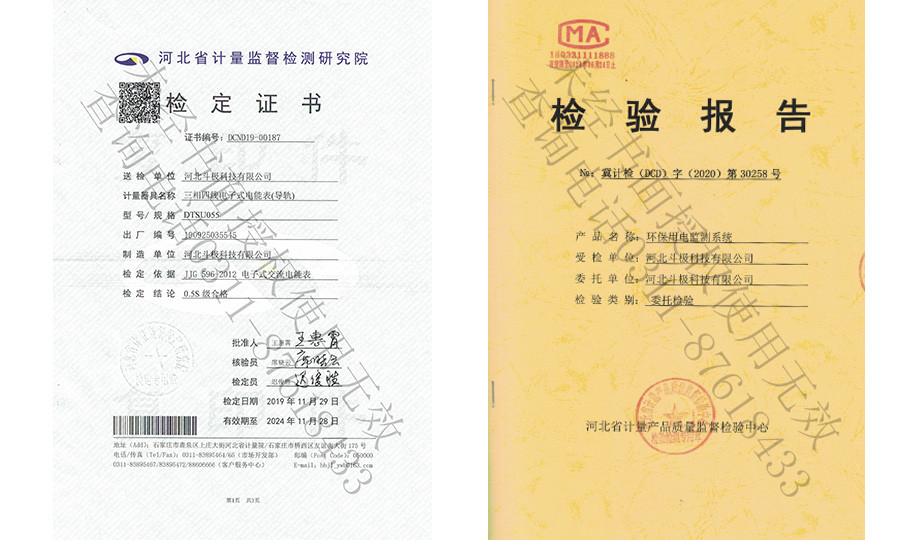 河北省计量监督检测研究院
检定证书
证书编号：DCND19-00187
送检单位 河北斗极科技有限公司
计量器具名称 三相四线电子式电能表(导轨)
型号/规格 DTSU055
出厂编号 190925035545
制造单位 河北斗极科技有限公司
检定依据 JJG 596-2012 电子式交流电能表
检定结论 0.5S 级合格
批准人 王惠霄
核验员 席晓云
检定员
检定日期 2019 年 11 月 29 日
有效期至 2024 年 11 月 28 日
地址（Add）：石家庄市鹿泉区上庄大街河北省计量院/石家庄市桥西区友谊南大街 175 号
电话/传真（Tel/Fax）：0311-83895464/65（市场开发部） 邮编（Post Code）：050000
0311-83895467/83895472/88606666（客户服务中心） E-mail：
第1页 共3页
未经书面授权使用无效
查询电话0311-87618433
MA
180321111888
检验报告
No：冀计检（DCD）字（2020）第 30258 号
产品名称：环保用电监测系统
受检单位：河北斗极科技有限公司
委托单位：河北斗极科技有限公司
检验类别：委托检验
河北省计量产品质量监督检验中心
未经书面授权使用无效
查询电话0311-87618433